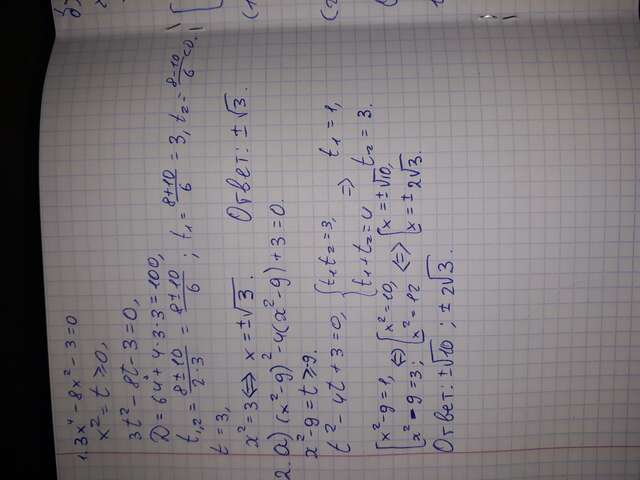 1. 3x⁴ - 8x² - 3 = 0
x² = t ≥ 0,
3t² - 8t - 3 = 0,
D = 64 + 4·3·3 = 100,
t₁,₂ = (8±10)/(2·3) = (8±10)/6 ; t₁ = (8+10)/6 = 3, t₂ = (8-10)/6 < 0.
t = 3,
x² = 3 ⇔ x = ±√3. Ответ: ±√3.
2. а) (x² - 9)² - 4(x² - 9) + 3 = 0.
x² - 9 = t ≥ 9.
t² - 4t + 3 = 0, { t₁t₂ = 3, t₁ + t₂ = 4 ⇒ t₁ = 1, t₂ = 3.
[ x² - 9 = 1, x² - 9 = 3; ⇔ [ x² = 10, x² = 12 ⇔ [ x = ±√10, x = ±2√3.
Ответ: ±√10 ; ±2√3.